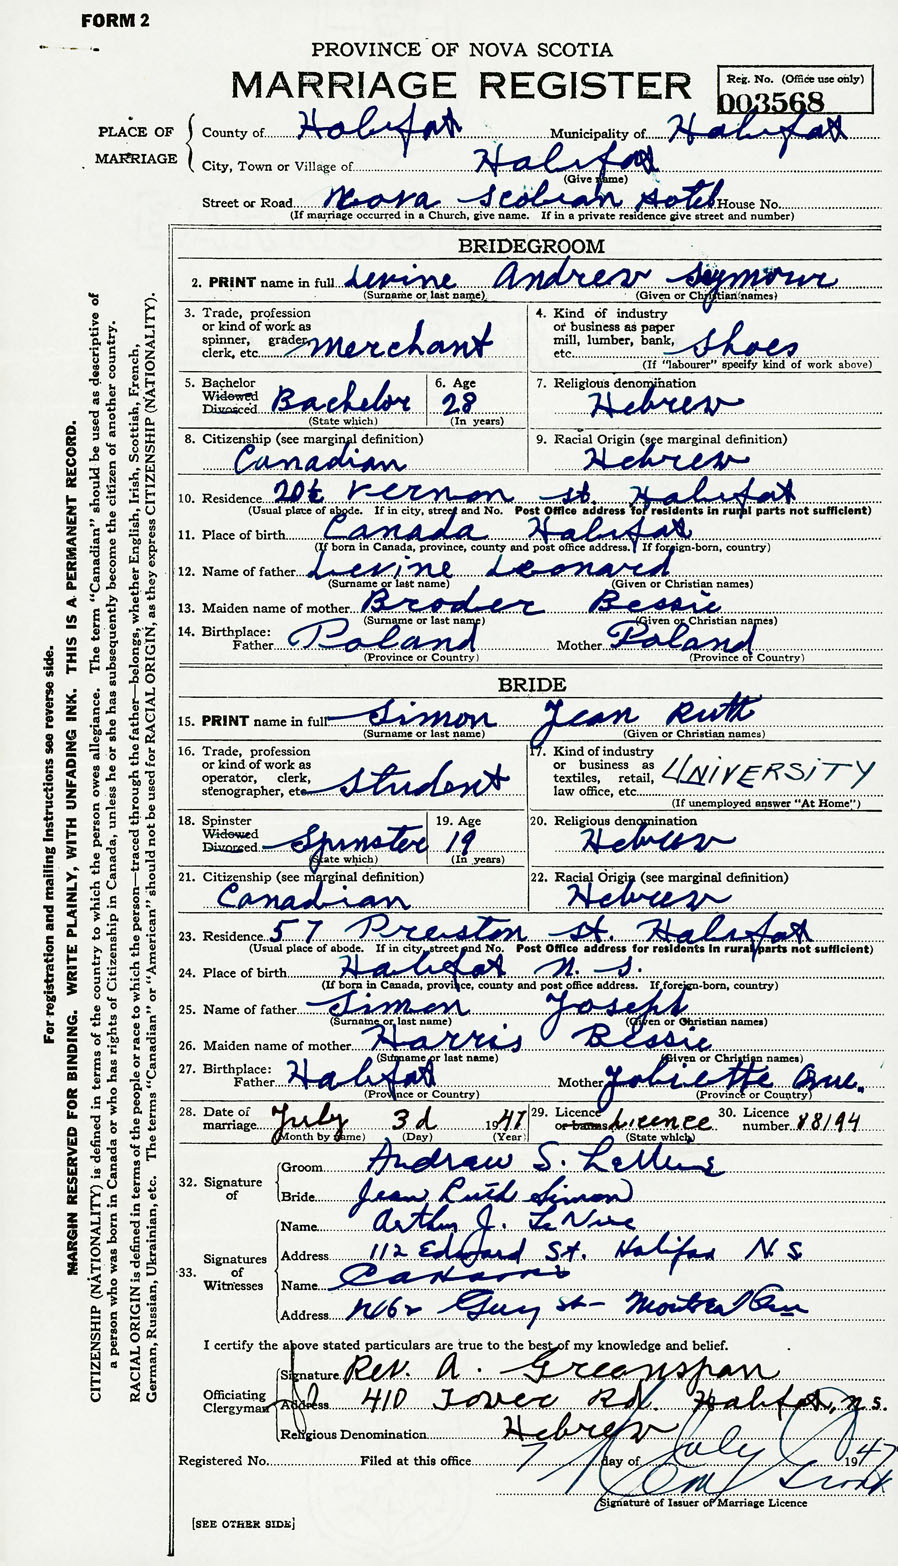 FORM 2
PROVINCE OF NOVA SCOTIA
MARRIAGE REGISTER
Reg. No. (Office use only)
003568
PLACE OF MARRIAGE
County of Halifax Municipality of Halifax
City, Town or Village of Halifax
(Give name)
Street or Road Nova Scotian Hotel House No.
(If marriage occurred in a Church, give name. If in a private residence give street and number)
BRIDEGROOM
2. PRINT name in full Levine Andrew Seymour
(Surname or last name) (Given or Christian names)
3. Trade, profession or kind of work as spinner, grader, clerk, etc. Merchant
4. Kind of industry or business as paper mill, lumber, bank, etc. Shoes
(If "labourer" specify kind of work above)
5. Bachelor Widowed Divorced Bachelor
(State which)
6. Age 28
(In years)
7. Religious denomination Hebrew
8. Citizenship (see marginal definition) Canadian
9. Racial Origin (see marginal definition) Hebrew
10. Residence Vernon St. Halifax
(Usual place of abode. If in city, street and No. Post Office address for residents in rural parts not sufficient)
11. Place of birth Canada Halifax
(If born in Canada, province, county and post office address. If foreign-born, country)
12. Name of father Levine Leonard
(Surname or last name) (Given or Christian names)
13. Maiden name of mother Broder Bessie
(Surname or last name) (Given or Christian names)
14. Birthplace: Father Poland Mother Poland
(Province or Country) (Province or Country)
BRIDE
15. PRINT name in full Simon Jean Ruth
(Surname or last name) (Given or Christian names)
16. Trade, profession or kind of work as operator, clerk, stenographer, etc. Student
17. Kind of industry or business as textiles, retail, law office, etc. UNIVERSITY
(If unemployed answer "At Home")
18. Spinster Widowed Divorced Spinster
(State which)
19. Age 19
(In years)
20. Religious denomination Hebrew
21. Citizenship (see marginal definition) Canadian
22. Racial Origin (see marginal definition) Hebrew
23. Residence 57 Preston St. Halifax
(Usual place of abode. If in city, street and No. Post Office address for residents in rural parts not sufficient)
24. Place of birth Halifax N. S.
(If born in Canada, province, county and post office address. If foreign-born, country)
25. Name of father Simon Joseph
(Surname or last name) (Given or Christian names)
26. Maiden name of mother Harris Bessie
(Surname or last name) (Given or Christian names)
27. Birthplace: Father Halifax Mother Joliette Que.
(Province or Country) (Province or Country)
28. Date of marriage July 3d 1947
(Month by name) (Day) (Year)
29. Licence or banns Licence
(State which)
30. Licence number 88194
32. Signature of
Groom Andrew S. LeVine
Bride Jean Ruth Simon
33. Signatures of Witnesses
Name Arthur J. LeVine
Address 112 Edward St. Halifax N.S
Name
Address Guy St- Montreal Que
I certify the above stated particulars are true to the best of my knowledge and belief.
Officiating Clergyman
Signature Rev. A. Greenspan
Address 410 Tower Rd. Halifax, N.S.
Religious Denomination Hebrew
Registered No. Filed at this office 7 day of July 1947
Signature of Issuer of Marriage Licence
[SEE OTHER SIDE]
For registration and mailing instructions see reverse side.
MARGIN RESERVED FOR BINDING. WRITE PLAINLY, WITH UNFADING INK. THIS IS A PERMANENT RECORD.
CITIZENSHIP (NATIONALITY) is defined in terms of the country to which the person owes allegiance. The term "Canadian" should be used as descriptive of
a person who was born in Canada or who has rights of Citizenship in Canada, unless he or she has subsequently become the citizen of another country.
RACIAL ORIGIN is defined in terms of the people or race to which the person—traced through the father—belongs, whether English, Irish, Scottish, French,
German, Russian, Ukrainian, etc. The terms "Canadian" or "American" should not be used for RACIAL ORIGIN, as they express CITIZENSHIP (NATIONALITY).